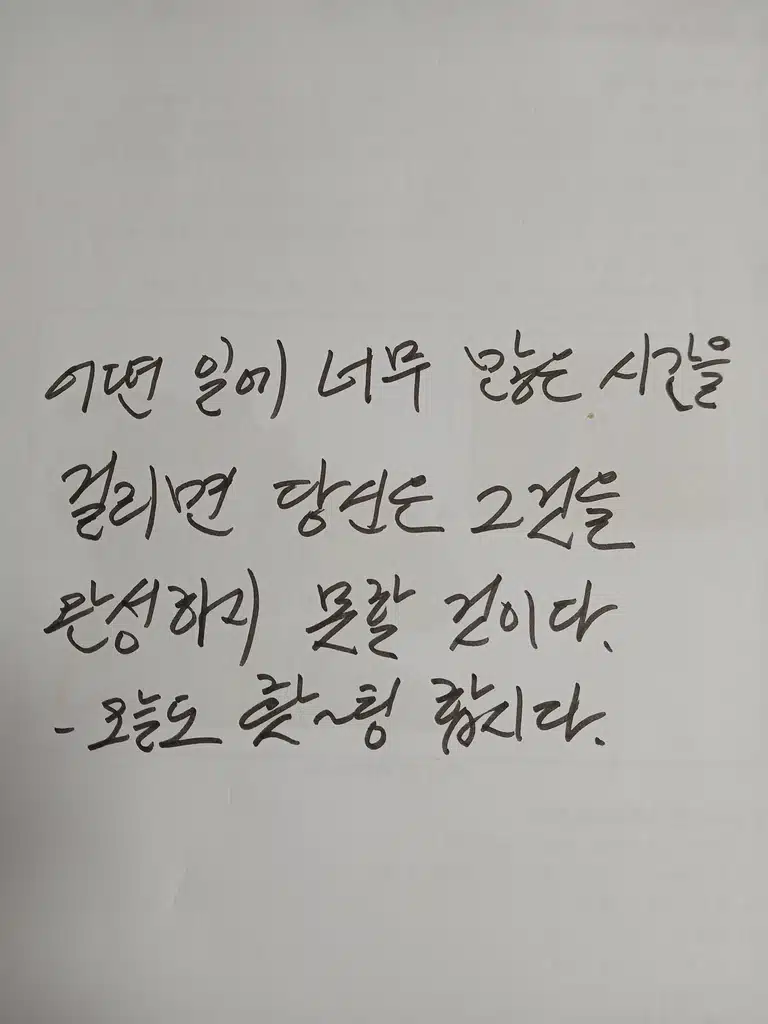 어떤 일에 너무 많은 시간을
걸리면 당신은 그것을
완성하지 못할 것이다.
- 오늘도 홧~팅 합시다.